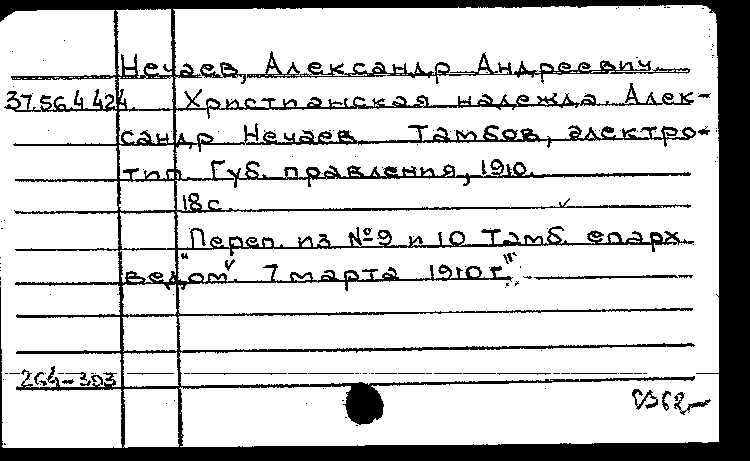 Нечаев, Александр Андреевич
37.56.4.424. Христианская надежда. Алек-
сандр Нечаев Тамбов, электро-
тип. Губ. правления, 1910.
18 с.
Переп. из №9 и 10 "Тамб. епарх.
ведом". 7 марта 1910 г."
264-303